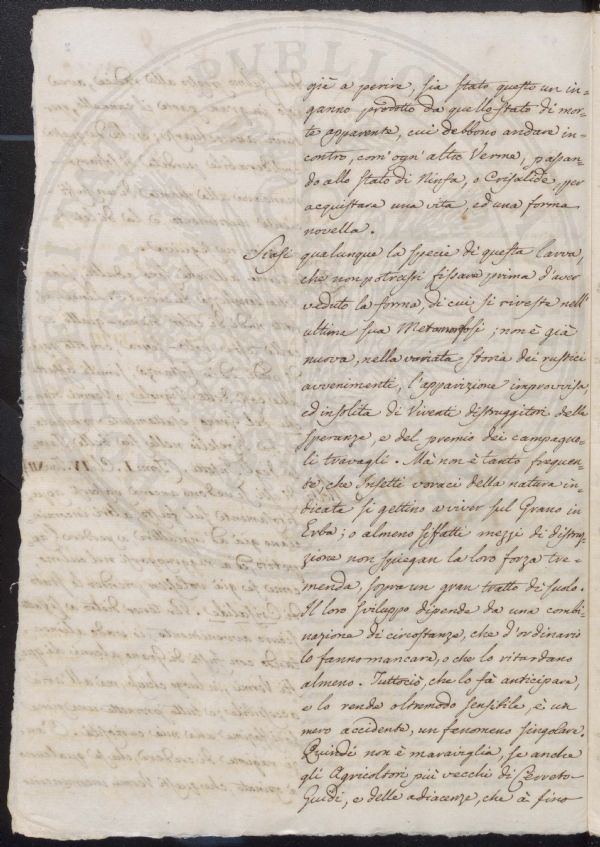 già a perire, sia stato questo un in-
ganno prodotto da quello stato di mor-
te apparente, cui debbono andare in-
contro, com'ogn'altro Verme, passan-
do allo stato di Ninfa, o Crisalide, per
acquistare una vita, ed una forma
novella.
Siasi qualunque la specie di questa larva,
che non potrassi fissare prima d'aver
veduto la forma, di cui si riveste nell'
ultima sua Metamorfosi; non è già
nuova, nella variata storia dei rustici
avvenimenti, l'apparizione improvvisa,
ed insolita di Viventi distruggitori delle
speranze, e del premio dei campagno-
li travagli. Mà non è tanto frequen-
te, che Insetti voraci della natura in-
dicata si gettino a viver sul Grano in
Erba; o almeno siffatti mezzi di distru-
zione non spiegan la loro forza tre-
menda, sopra un gran tratto di suolo.
Il loro sviluppo dipende da una combi-
nazione di circostanze, che d'ordinario
lo fanno mancare, o che lo ritardano
almeno. Tuttociò, che lo fà anticipare,
e lo rende oltremodo sensibile, è un
mero accidente, un fenomeno singolare.
Quindi non è maraviglia, se anche
gli Agricoltori più vecchi di Cerreto-
Guidi, e delle adiacenze, che à fino